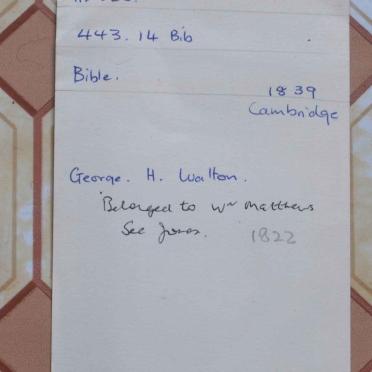 443.14 Bib
Bible.
1839
Cambridge
George. H. Walton.
Belonged to Wm Matthews
See
1822